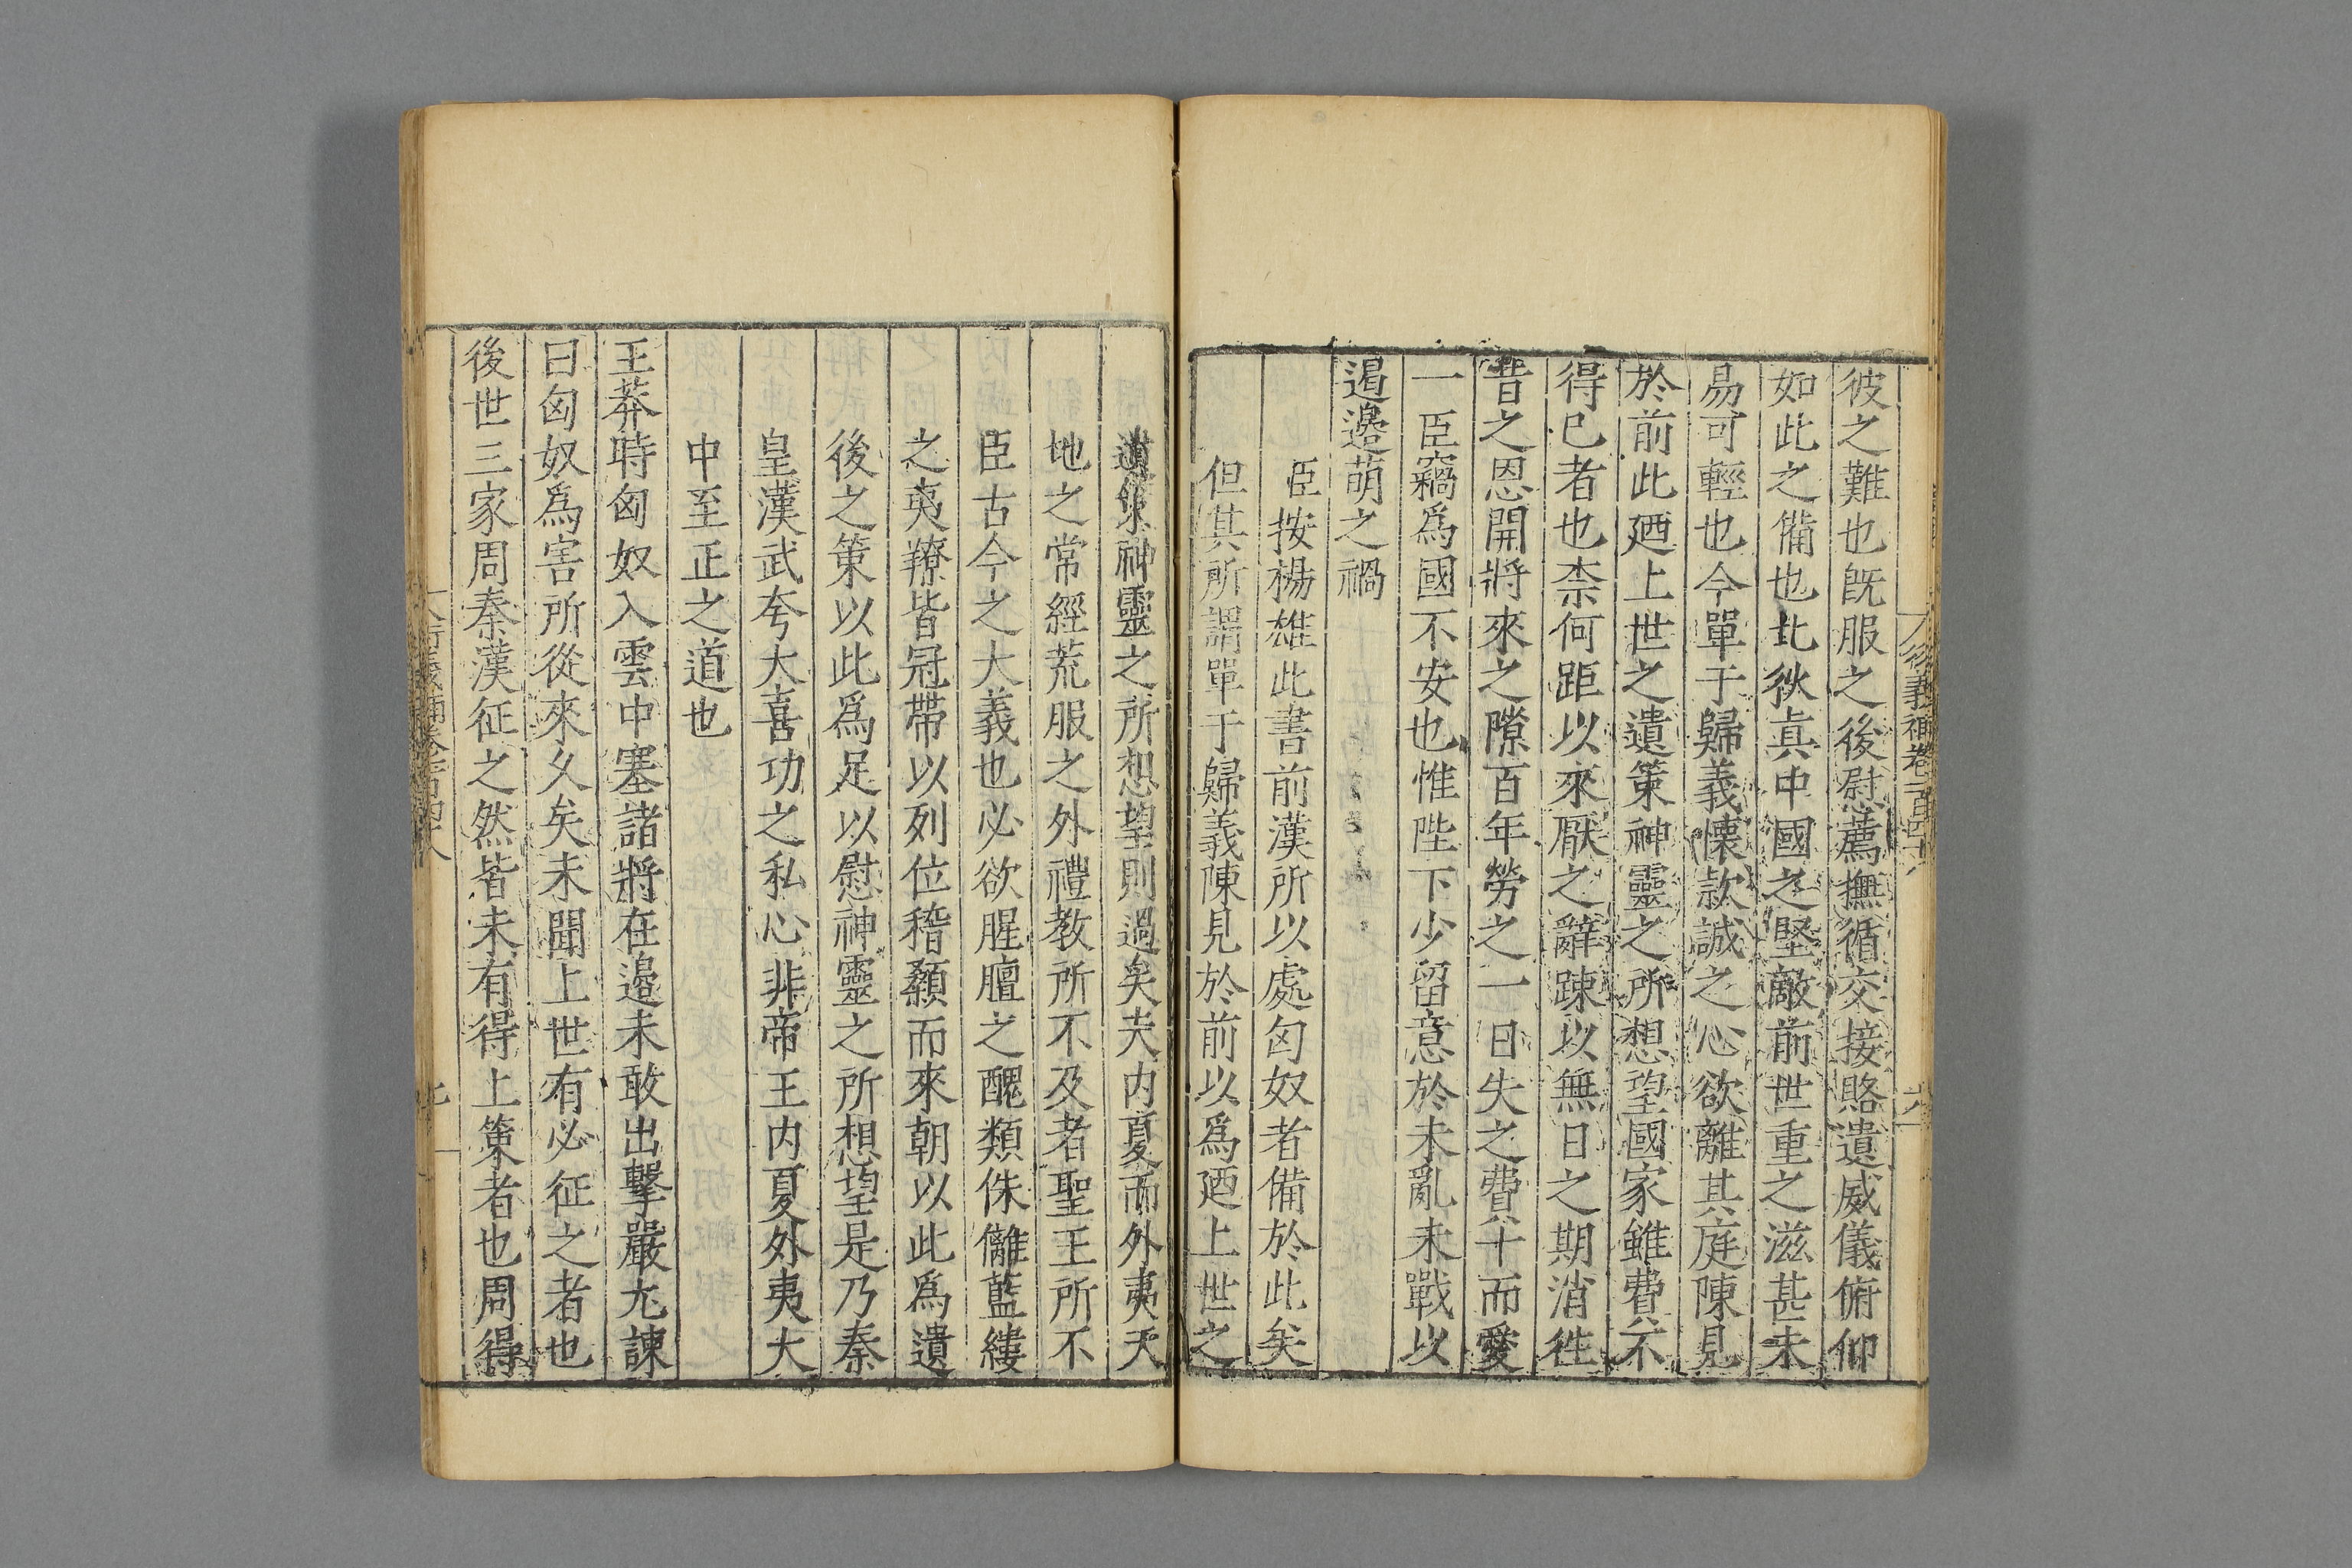 彼之難也旣服之後慰薦撫循交接賂遺威儀俯仰
如此之備也北狄真中國之堅敵前世重之滋甚未
易可輕也今單于歸義懷款誠之心欲離其庭陳見
於前此廼上世之遺策神靈之所想望國家雖費不
得已者也柰何距以來厭之辭踈以無日之期消徃
昔之恩開將來之隙百年勞之一日失之費十而愛
一臣竊爲國不安也惟陛下少留意於未亂未戰以
遏邊萌之禍
臣按楊雄此書前漢所以處匈奴者備於此矣
但其所謂單于歸義陳見於前以爲廼上世之
遺策神靈之所想望則過矣夫内夏而外夷天
地之常經荒服之外禮教所不及者聖王所不
臣古今之大義也必欲腥膻之醜類侏儷藍縷
之夷獠皆冠帶以列位稽顙而來朝以此爲遺
後之策以此爲足以慰神靈之所想望是乃秦
皇漢武夸大喜功之私心非帝王内夏外夷大
中至正之道也
王莽時匈奴入雲中塞諸將在邊未敢出擊嚴尤諫
曰匈奴爲害所從來久矣未聞上世有必征之者也
後世三家周秦漢征之然皆未有得上策者也周得